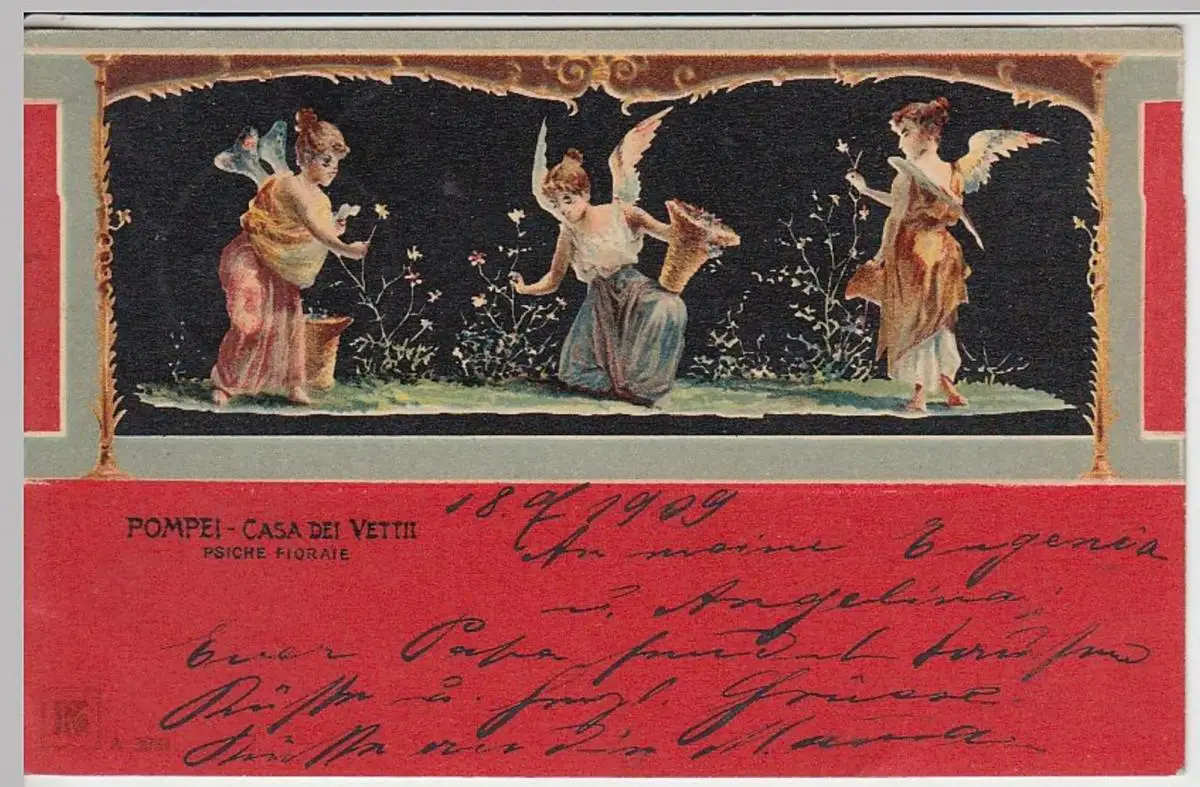 POMPEI - CASA DEI VETTII
PSICHE FIORAIE
18.9/1909
An meine Eugenia
u. Angelina,
Euer Papa sendet tausend
Küsse u. herzl. Grüsse
Küsse an die Mama